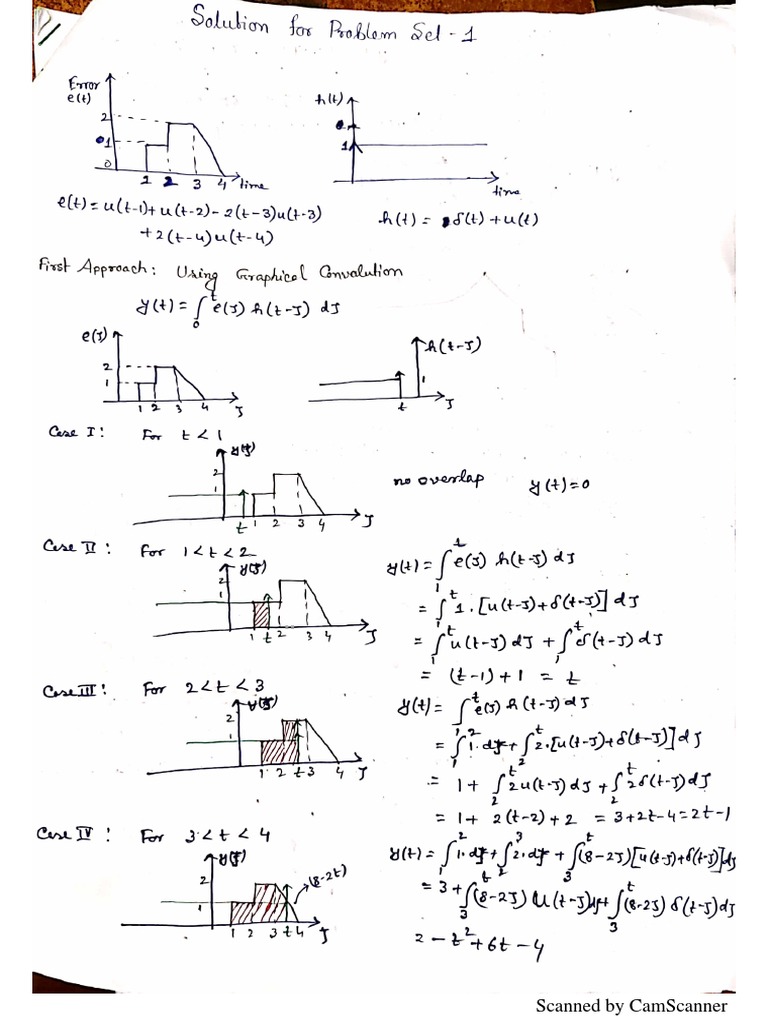 Solution for Problem Set - 1
Error
e(t)
2
1
0
1 2 3 4 time
h(t)
1
time
e(t) = u(t-1) + u(t-2) - 2(t-3)u(t-3)
+ 2(t-4)u(t-4)
h(t) = δ(t) + u(t)
First Approach: Using Graphical Convalution
y(t) = ∫₀ᵗ e(J) h(t-J) dJ
e(J)
2
1
1 2 3 4 J
h(t-J)
1
t J
Case I: For t < 1
y(J)
2
1
t 1 2 3 4 J
no overlap y(t) = 0
Case II: For 1 < t < 2
y(J)
2
1
1 t 2 3 4 J
y(t) = ∫₁ᵗ e(J) h(t-J) dJ
= ∫₁ᵗ 1.[u(t-J) + δ(t-J)] dJ
= ∫₁ᵗ u(t-J) dJ + ∫₁ᵗ δ(t-J) dJ
= (t-1) + 1 = t
Case III: For 2 < t < 3
y(J)
2
1
1 2 t 3 4 J
y(t) = ∫₁ᵗ e(J) h(t-J) dJ
= ∫₁² 1.dJ + ∫₂ᵗ 2.[u(t-J) + δ(t-J)] dJ
= 1 + ∫₂ᵗ 2u(t-J) dJ + ∫₂ᵗ 2δ(t-J) dJ
= 1 + 2(t-2) + 2 = 3+2t-4 = 2t-1
Case IV: For 3 < t < 4
y(J)
2
1
(8-2t)
1 2 3 t 4 J
y(t) = ∫₁² 1.dJ + ∫₂³ 2.dJ + ∫₃ᵗ (8-2J)[u(t-J) + δ(t-J)] dJ
= 3 + ∫₃ᵗ (8-2J) u(t-J) dJ + ∫₃ᵗ (8-2J) δ(t-J) dJ
2 - t² + 6t - 4
Scanned by CamScanner